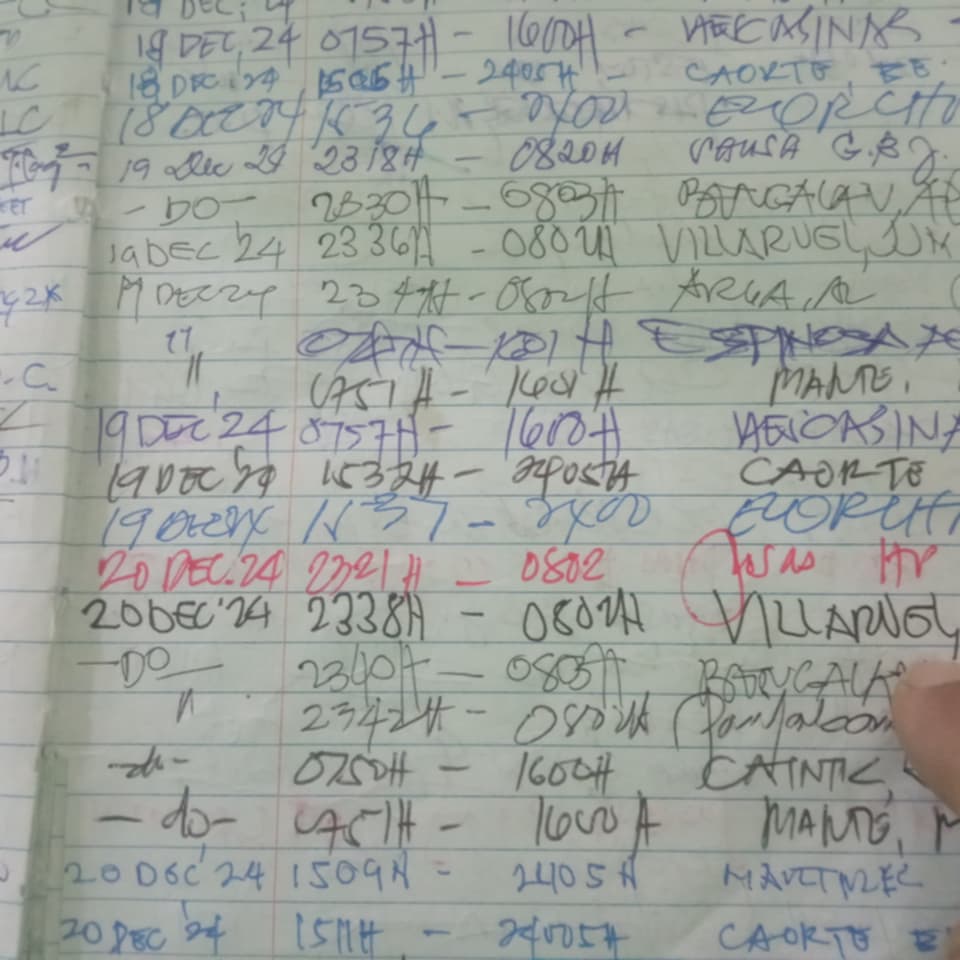 18 DEC, 24 0757H - 1600H - AEICASINAS -
18 DEC '24 1505H - 2405H - CAORTE, EE.
LC 18 DEC 24 1534 - 2400 EUORCH
19 Dec 24 2318H - 0820H SAUSA G.B.J.
- DO - 2330H - 0803H BANGALAN, AB
19 DEC '24 2336H - 0802H VILLARUEL, JJM
19 DEC 24 2347H - 0802H ARGA, AL
" H ESPINOSA
. C. " 0751H - 1601H MANTE.
19 DEC '24 0757H - 1600H AEICASINA
19 DEC '24 1532H - 2405H CAORTE
19 DEC 24 1537 - 2400 EUORCH
20 DEC. 24 2321H - 0802
20 DEC '24 2338H - 0802H VILLARUEL,
- DO - 2340H - 0803H BANGALA
" 2342H - 0802H
- do - 0750H - 1600H CAINTIC,
- do - 0751H - 1600H MANTE, M
20 DEC '24 1509H - 2405H MARTINEZ
20 DEC '24 1511H - 24005H CAORTE E